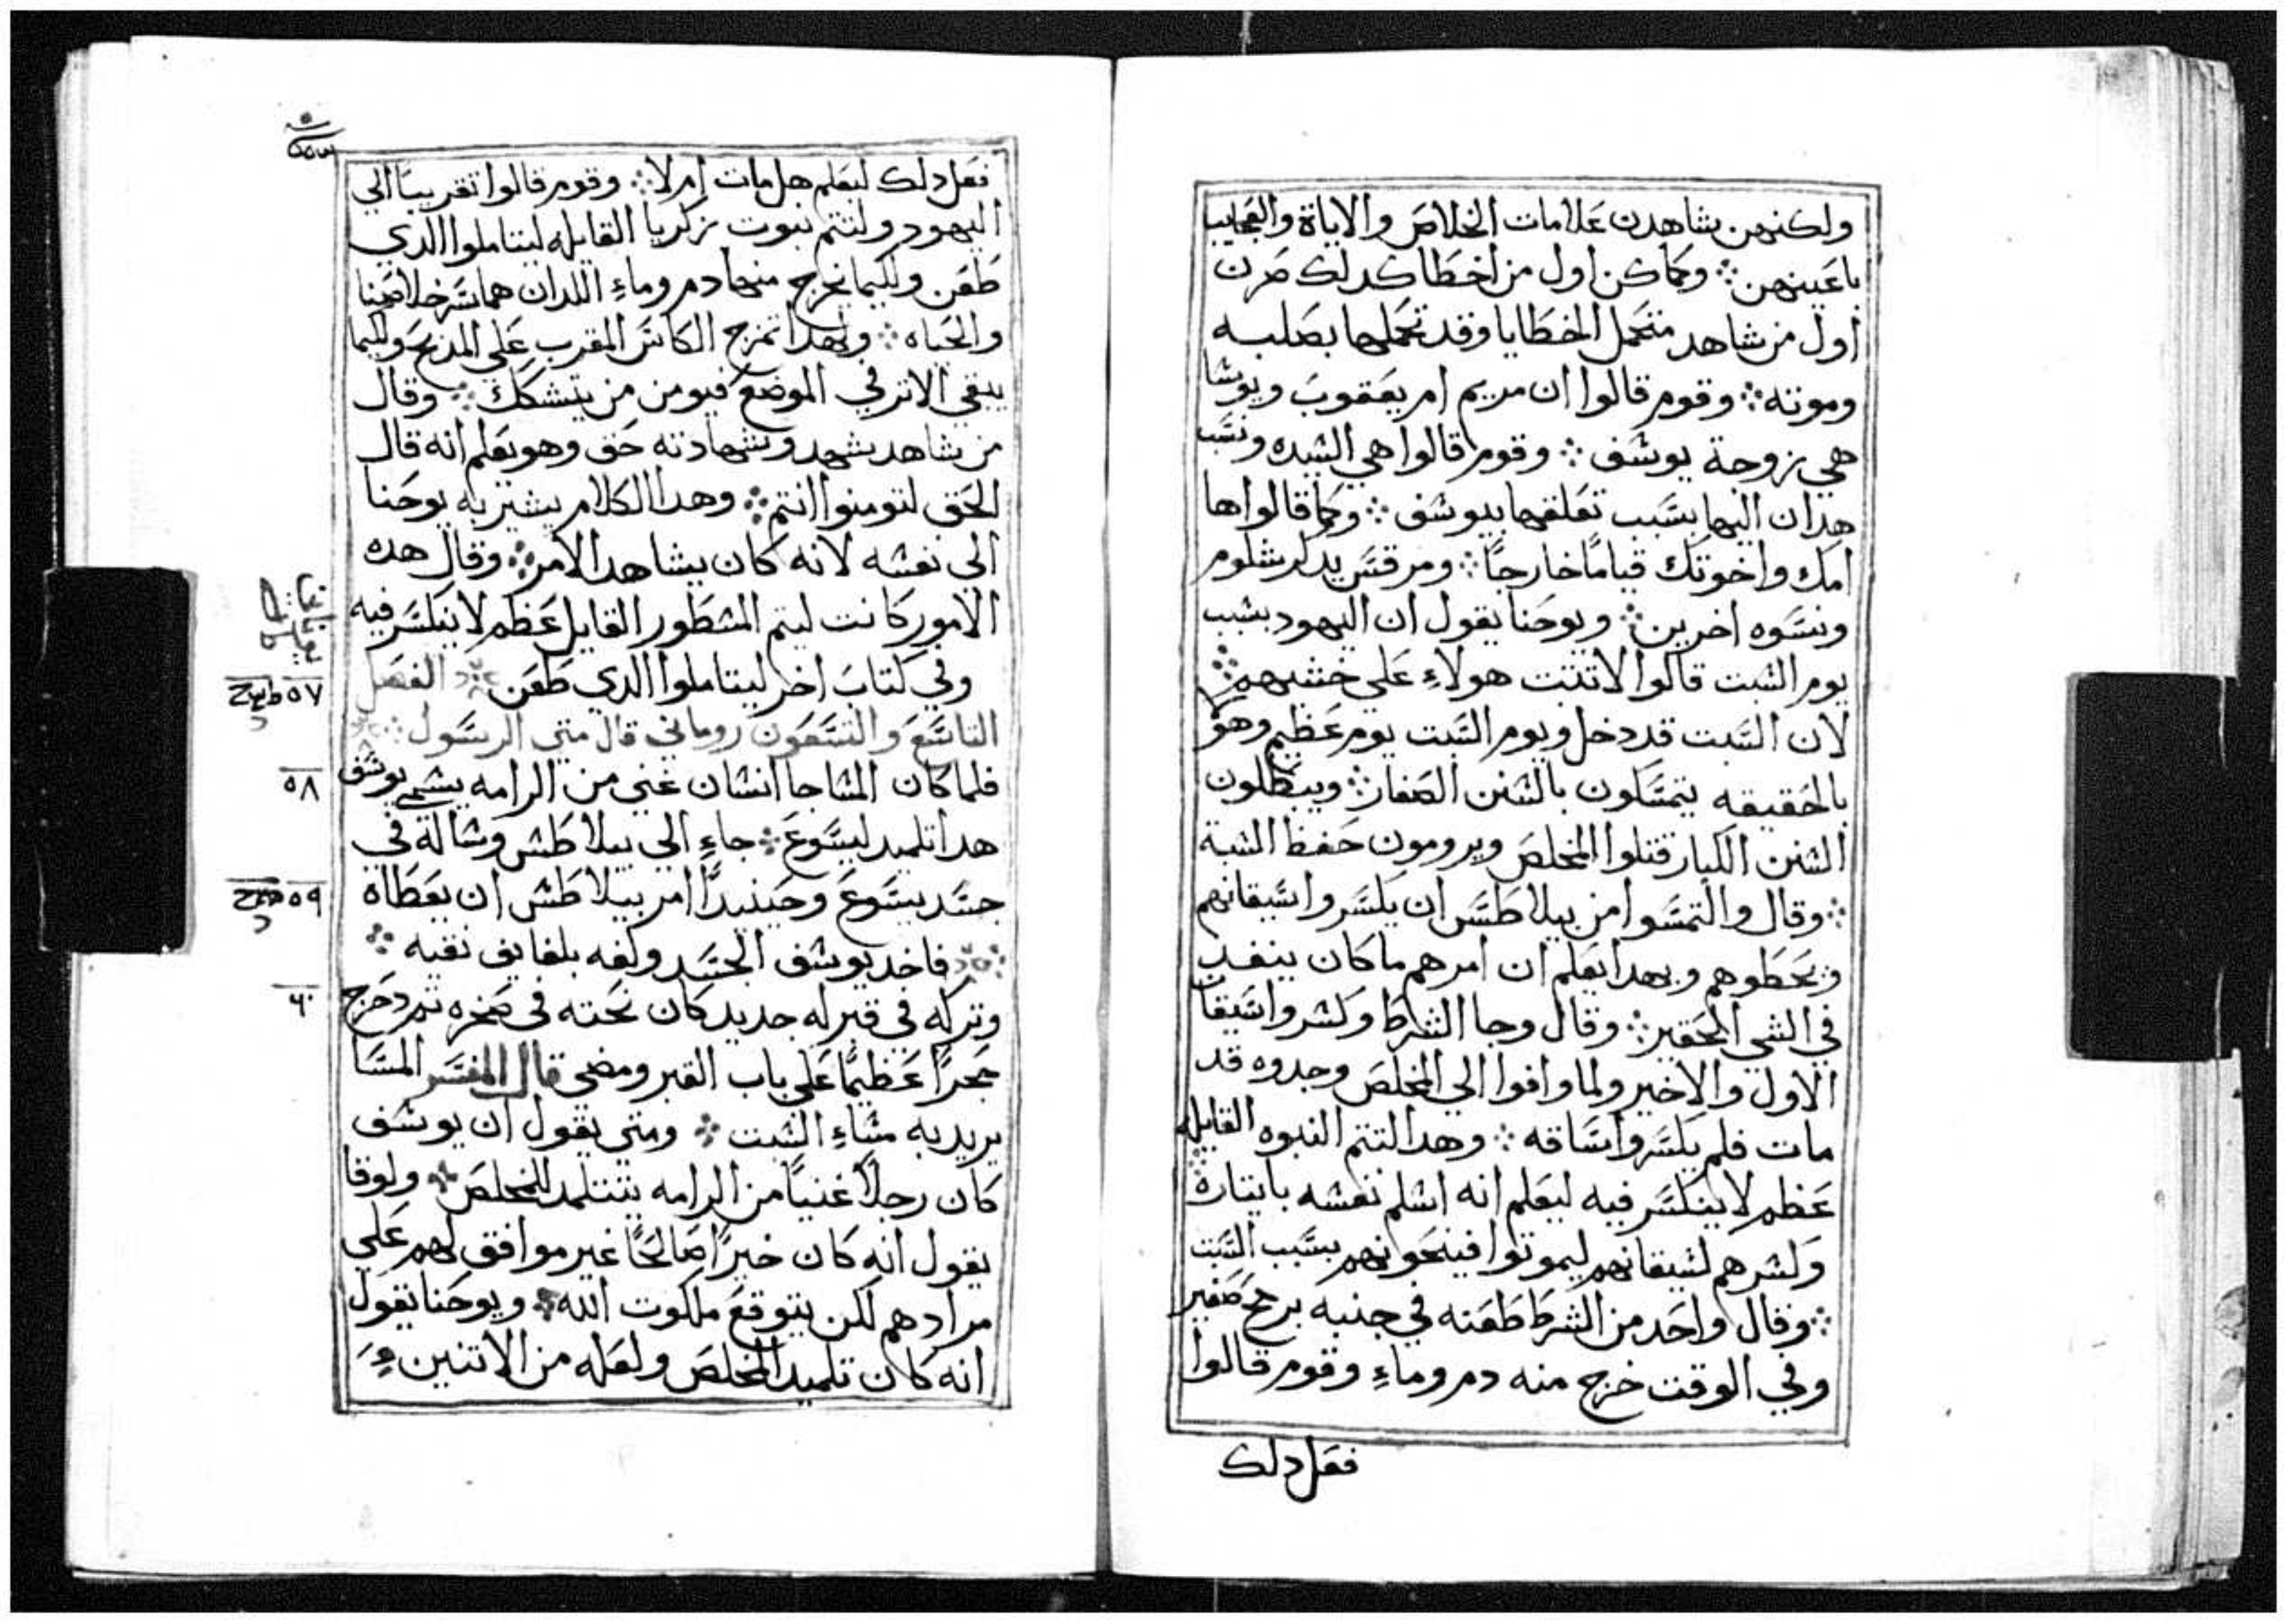 ولكنهن يشاهدن علامات الخلاص والاياة والعجايب
باعينهن ⁘ وكما كن اول من اخطا كدلك صرن
اول من شاهد متحمل الخطايا وقد تحملها بصلبه
وموته ⁘ وقوم قالوا ان مريم ام يعقوب ويوسا
هي زوجة يوسف ⁘ وقوم قالوا هي السيده ونسب
هدان اليها بسبب تعلقها بيوسف ⁘ وكما قالوا ها
امك واخوتك قياما خارجا ⁘ ومرقس يدكر شلوم
ونسوه اخرين ⁘ ويوحنا يقول ان اليهود بسبب
يوم السبت قالوا لا تثبت هولاء علي خشبهم ⁘
لان السبت قد دخل ويوم السبت يوم عظيم وهو
بالحقيقه يتمسكون بالسنن الصغار ⁘ ويبطلون
السنن الكبار قتلوا المخلص ويرومون حفظ السبة
⁘ وقال والتمسوا من بيلاطس ان يكسروا سيقانهم
ويحطوهم وبهدا يعلم ان امرهم ما كان ينفد
في الشي الحقير ⁘ وقال وجا الشرط وكسروا سيقان
الاول والاخير ولما وافوا الي المخلص وجدوه قد
مات فلم يكسروا ساقه ⁘ وهدا لتتم النبوه القايله
عظم لا ينكسر فيه ليعلم انه اسلم نفسه بايتارة
وكسرهم لسيقانهم ليموتوا فينحونهم بسبب السبت
⁘ وقال واحد من الشرط طعنه في جنبه برمح صغير
وفي الوقت خرج منه دم وماء وقوم قالوا
فعل دلك
فعل دلك ليعلم هل مات ام لا ⁘ وقوم قالوا تقريبا الي
اليهود ولتتم نبوت زكريا القايله ليتاملوا الدي
طعن ولكيما يخرج منها دم وماء اللدان هما سر خلاصنا
والحياه ⁘ ولهدا تمزج الكاس المقرب علي المدبح ولكيما
يبقي الاتر في الموضع فيومن من يتشكك ⁘ وقال
من شاهد يشهد وشهادته حق وهو يعلم انه قال
الحق لتومنوا انتم ⁘ وهدا الكلام يشير به يوحنا
الي نفسه لانه كان يشاهد الامر ⁘ وقال هده
الامور كانت ليتم المسطور القايل عظم لا ينكسر فيه
وفي كتاب اخر ليتاملوا الدي طعن ⁘ الفصل
٥٧
التاسع والتسعون روماني قال متي الرسول ⁘
فلما كان المسا جا انسان غني من الرامه يسمي يوسف
٥٨
هدا تلميد ليسوع ⁘ جاء الي بيلاطس وساله في
جسد يسوع وحينيدا امر بيلاطس ان يعطاه
٥٩
⁘ فاخد يوسف الجسد ولفه بلفايف نقيه ⁘
وتركه في قبر له جديد كان نحته في صخره تم دحرج
٦٠
حجرا عظيما علي باب القبر ومضي قال المفسر المسا
يريد به مساء السبت ⁘ ومتي يقول ان يوسف
كان رجلا غنيا من الرامه يتتلمد للمخلص ⁘ ولوقا
يقول انه كان خيرا صالحا غير موافق لهم علي
مرادهم لكن يتوقع ملكوت الله ⁘ ويوحنا يقول
انه كان تلميد المخلص ولعله من الاتنين